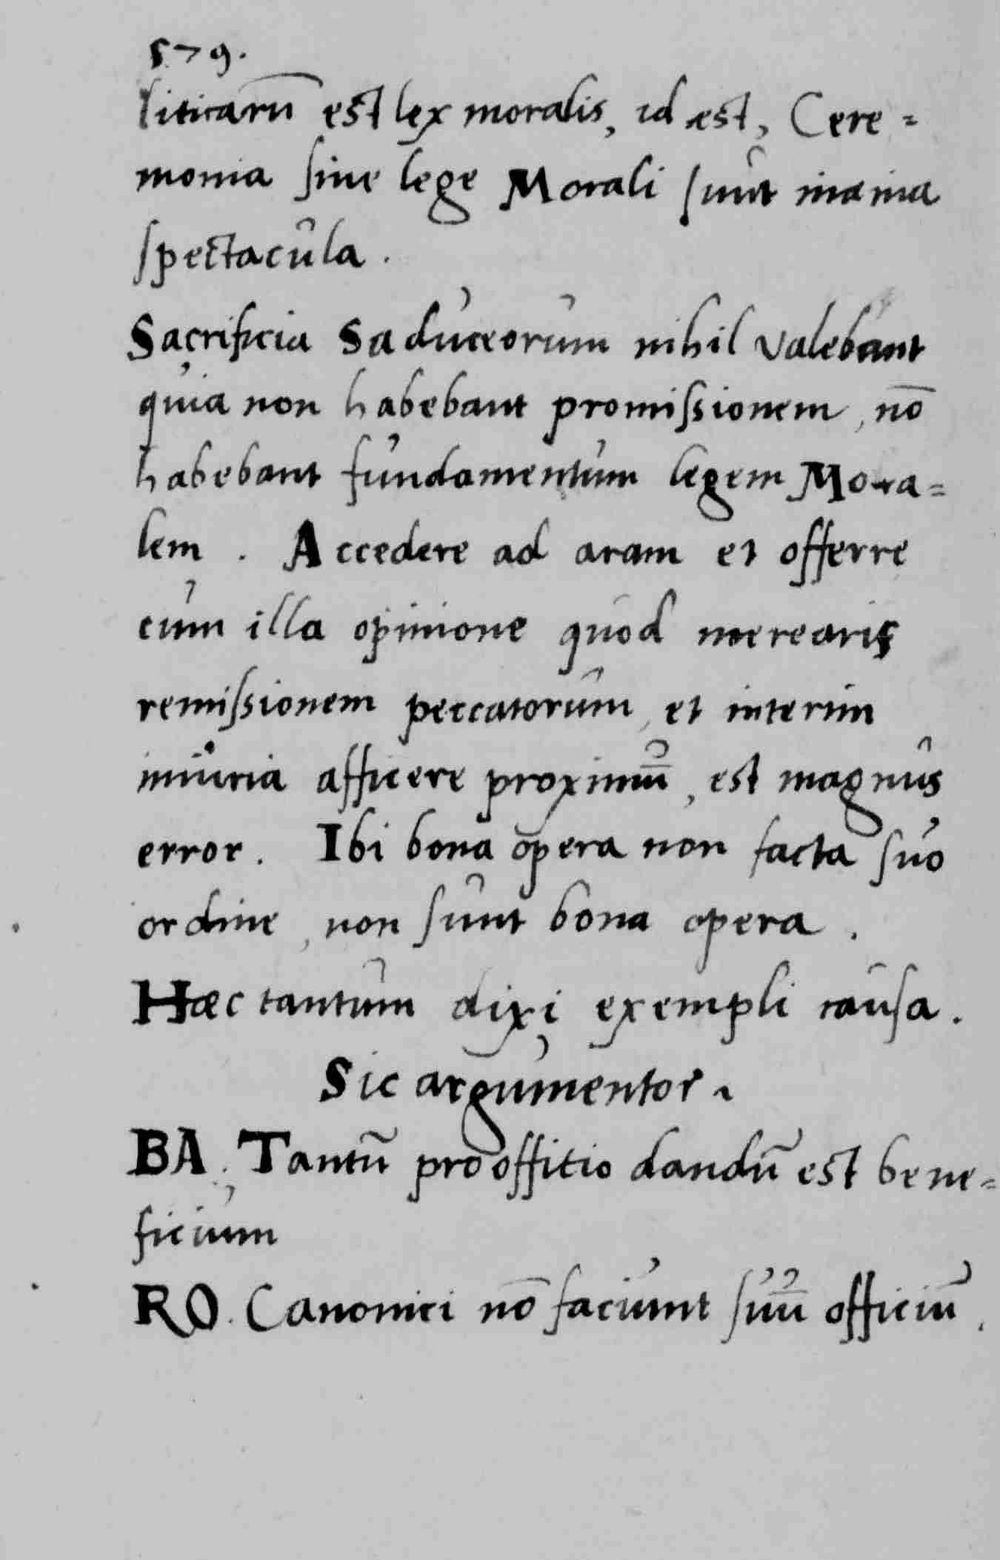 579.
liticarū est lex moralis, id æst, Cere=
monia sine lege Morali sunt inania
spectacula.
Sacrificia Saduceorum nihil valebant
quia non habebant promissionem, nō
habebant fundamentum legem Mora=
lem. Accedere ad aram et offerre
cum illa opinione quod merearis
remissionem peccatorum, et interim
iniuria afficere proximū, est magnus
error. Ibi bona opera non facta suo
ordine, non sunt bona opera.
Hæc tantum dixi exempli causa.
Sic argumentor.
BA. Tantū pro offitio dandū est bene=
ficium
RO. Canonici nō faciunt suū officiū.